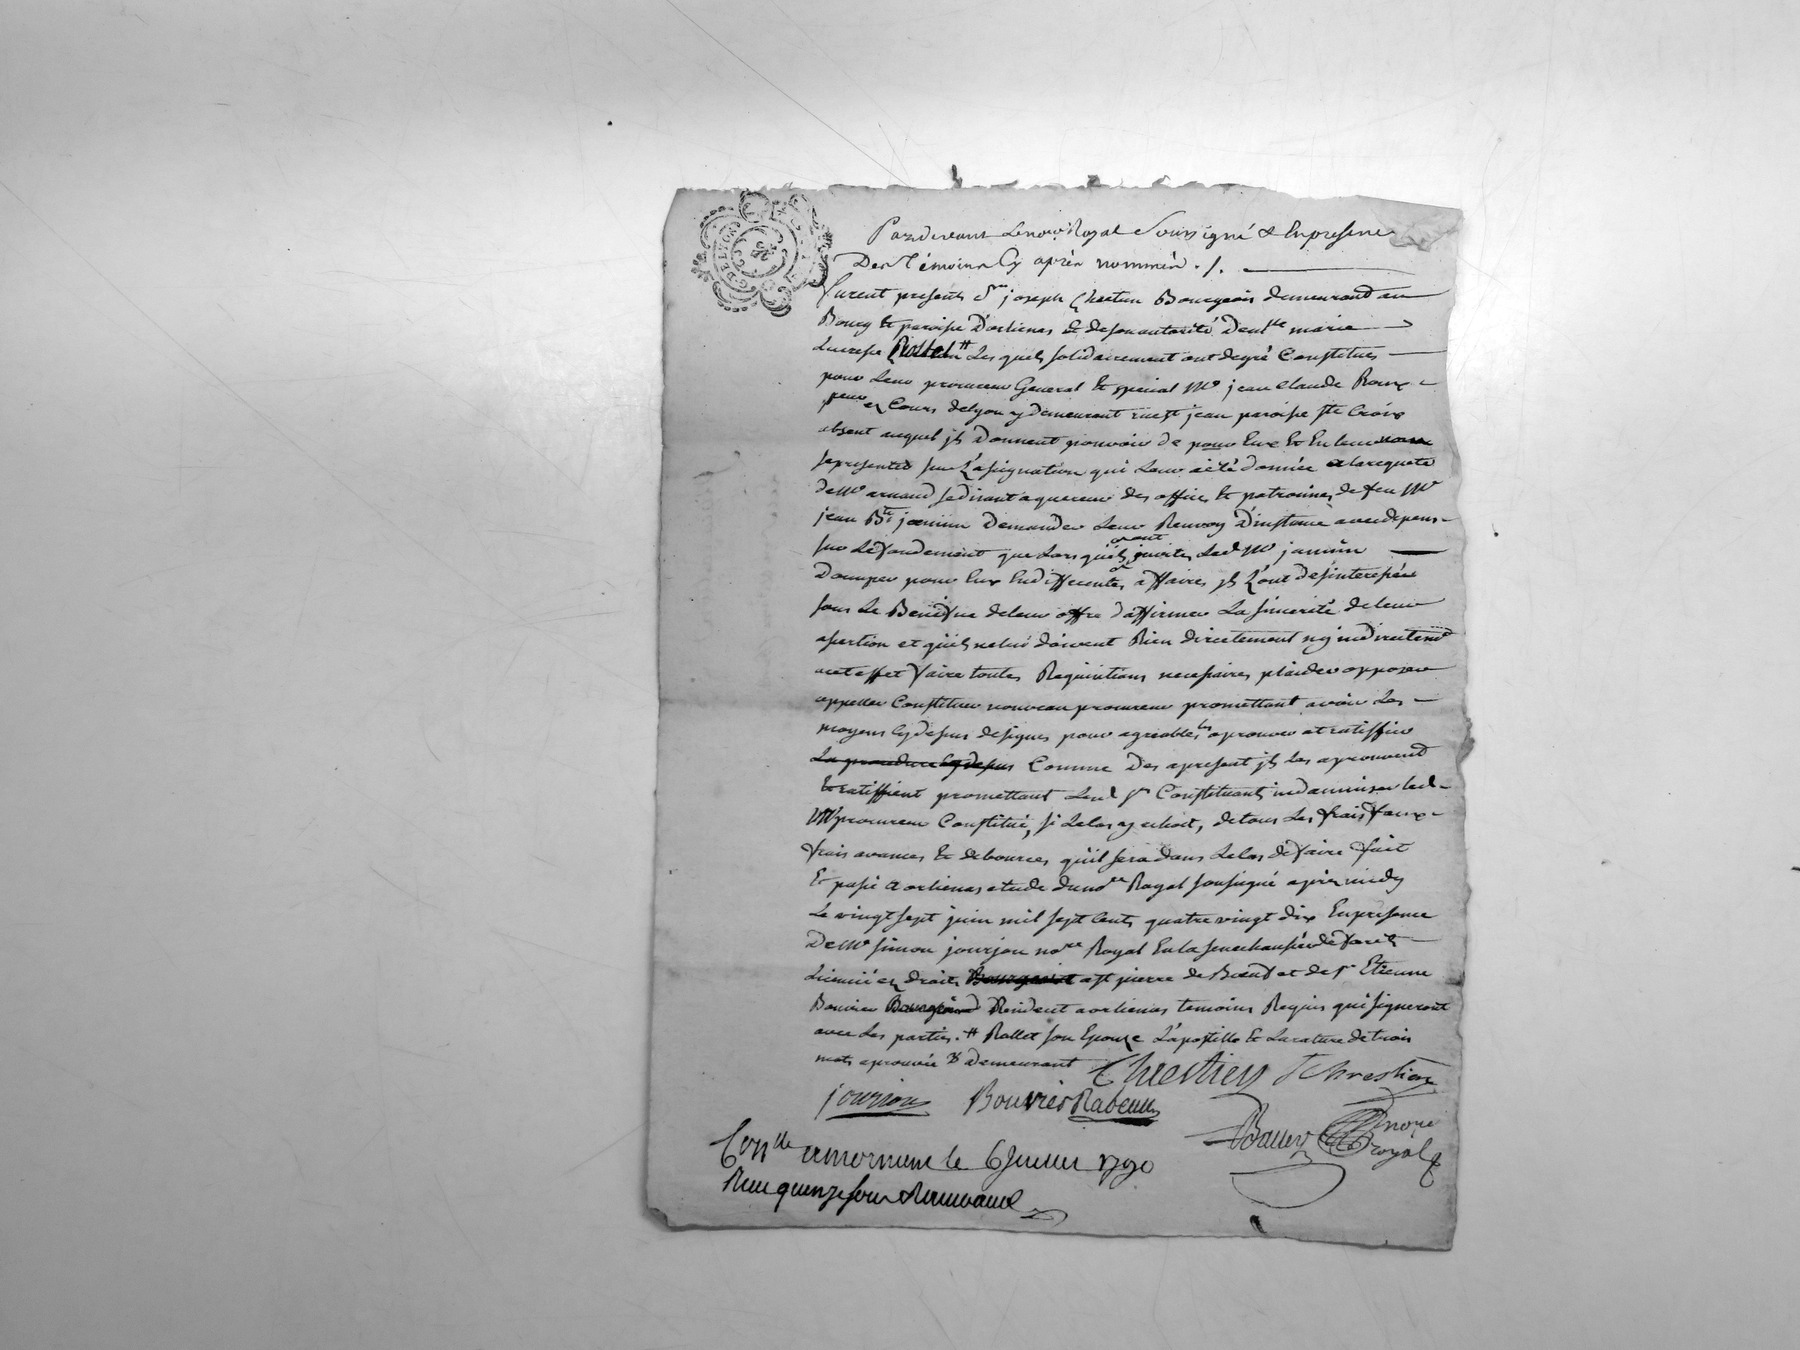 Pardevant Le no.re Royal Soussigné & En presence
Des Témoins Cy après nommés ./.
furent presents S.r joseph Chretien Bourgeois demeurant au
Bourg & paroisse D'orlienas & de son autorité Dem.lle marie
Lucresse # Les quels solidairement ont de gré Constitués
pour Leur procureur General & special M.e jean Claude Roux
pr.eur es Cours de Lyon y demeurant rue S.t jean paroisse S.te Croix
absent auquel jls Donnent pouvoir de pour Eux Et En leur nom
se presenter sur L'assignation qui Leur a été donnée a la requete
de M.e arnaud se disant aquereur des offices & patroines de feu M.e
jean B.te jannin Demander Leur Renvoy D'instance avec depens
sur Le fondement que Lors qu'ils ont invités Led M.e jannin
D'ocuper pour Eux En differentes affaires jls L'ont desinteressée
sous Le Benefice de leur offre d'affirmer La sincerité de leur
assertion et qu'ils ne lui doivent Rien directement ny indirectem.t
a cet effet faire toutes Requisitions necessaires plaider opposer
appeller Constituer nouveau procureur promettant avoir Les
moyens Cy dessus designes pour agreables les aprouver et ratiffier
La procedure Cy dessus Comme Des apresent jls Les aprouvent
Et ratiffient promettant Lesd S.rs Constituants indamniser led
M.e procureur Constitué, si Le Cas y echoit, de tous Les frais faux
frais avances & debources qu'il sera dans Le Cas de faire fait
Et passé a orlienas etude du no.re Royal soussigné après midy
Le vingt sept juin mil sept Cents quatre vingt dix En presence
De M.e simon jourjon no.re Royal En la senechaussée de forêts
Licencié es droits Bourgeois a S.t pierre de Bœuf et de S.r Etienne
Bouvier Resident a orlienas temoins Requis qui signeront
avec Les parties. # Rallet son Epouze L'apostille & La rature de trois
mots aprouvée & demeurant Chrestien f Chrestien
jourjon Bouvier Rabeau
no.re
royal
Con.lle a mornant le 6 Juillet 1790
Recu quinze sous